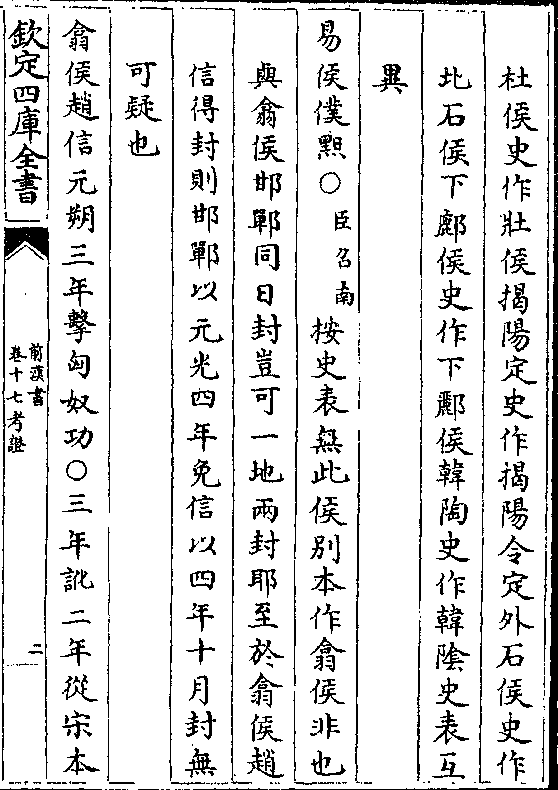 杜侯史作壯侯揭陽定史作揭陽令定外石侯史作
北石侯下鄜侯史作下酈侯韓陶史作韓陰史表互
異
易侯僕黥○臣召南按史表無此侯別本作翕侯非也
與翕侯邯鄲同日封豈可一地兩封耶至於翕侯趙
信得封則邯鄲以元光四年免信以四年十月封無
可疑也
翕侯趙信元朔三年擊匈奴功○三年訛二年從宋本
欽定四庫全書
前漢書
卷十七考證
二